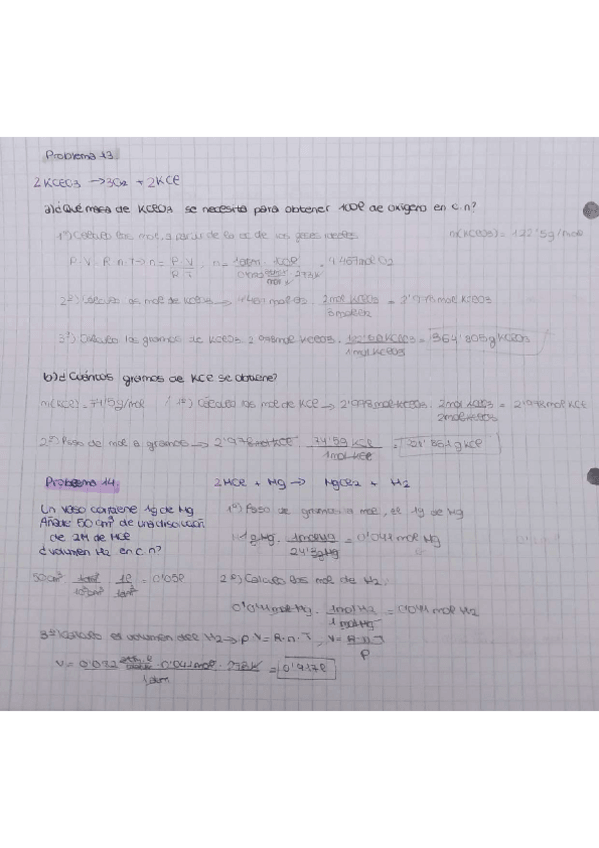 Problema 13.
2KClO3 → 3O2 + 2KCl
a) ¿Qué masa de KClO3 se necesita para obtener 100l de oxígeno en c.n?
1º) Calculo los mol a partir de la ec de los gases ideales m(KClO3) = 122'5g/mol
P.V = R.n.T → n = P.V / R.T ; n = 1atm . 100l / 0'082 atm.l/mol.K . 273K = 4'467mol O2
2º) Calculo los mol de KClO3 → 4'467 mol O2 . 2mol KClO3 / 3mol O2 = 2'978mol KClO3
3º) Calculo los gramos de KClO3 2'978mol KClO3 . 122'5g KClO3 / 1mol KClO3 = 364'805g KClO3
b) ¿Cuántos gramos de KCl se obtiene?
m(KCl) = 74'5g/mol 1º) Calculo los mol de KCl → 2'978mol KClO3 . 2mol KClO3 / 2mol KClO3 = 2'978mol KCl
2º) Paso de mol a gramos → 2'978mol KCl . 74'5g KCl / 1mol KCl = 221'861g KCl
Problema 14. 2HCl + Mg → MgCl2 + H2
Un vaso contiene 1g de Mg 1º) Paso de gramos a mol, el 1g de Mg
Añade 50cm³ de una disolución
de 2M de HCl 1g Mg . 1mol Mg / 24'3g Mg = 0'041mol Mg
¿volumen H2 en c.n?
50cm³ . 1dm³ / 10³cm³ . 1l / 1dm³ = 0'05l 2º) Calculo los mol de H2
0'041mol Mg . 1mol H2 / 1mol Mg = 0'041 mol H2
3º) Calculo el volumen del H2 → P.V = R.n.T ; V = R.n.T / P
V = 0'082 atm.l/mol.K . 0'041mol . 273K / 1atm = 0'917l